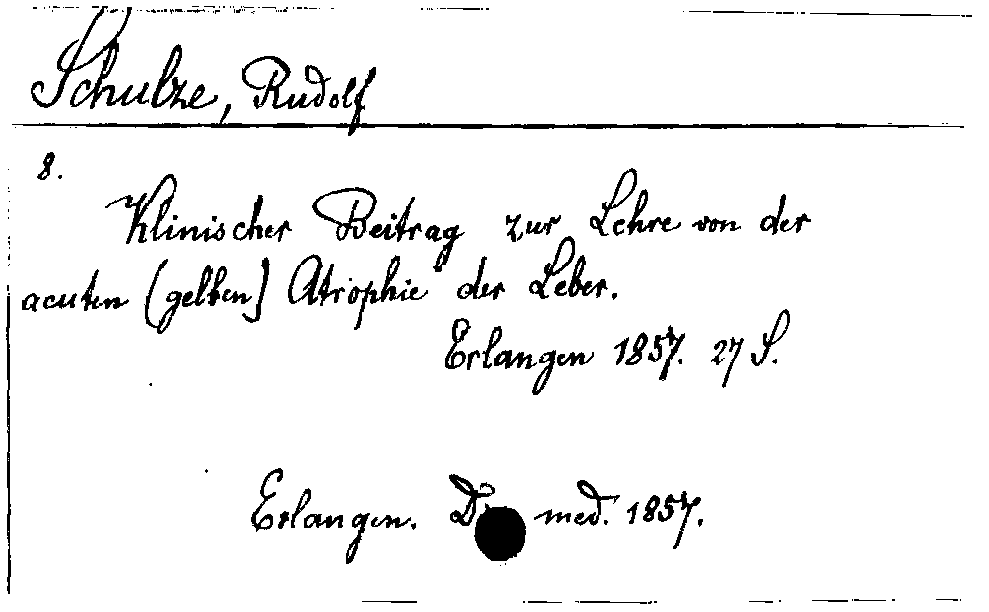 Schulze, Rudolf
8.
Klinischer Beitrag zur Lehre von der
acuten (gelben) Atrophie der Leber.
Erlangen 1857. 27 S.
Erlangen. med. 1857.